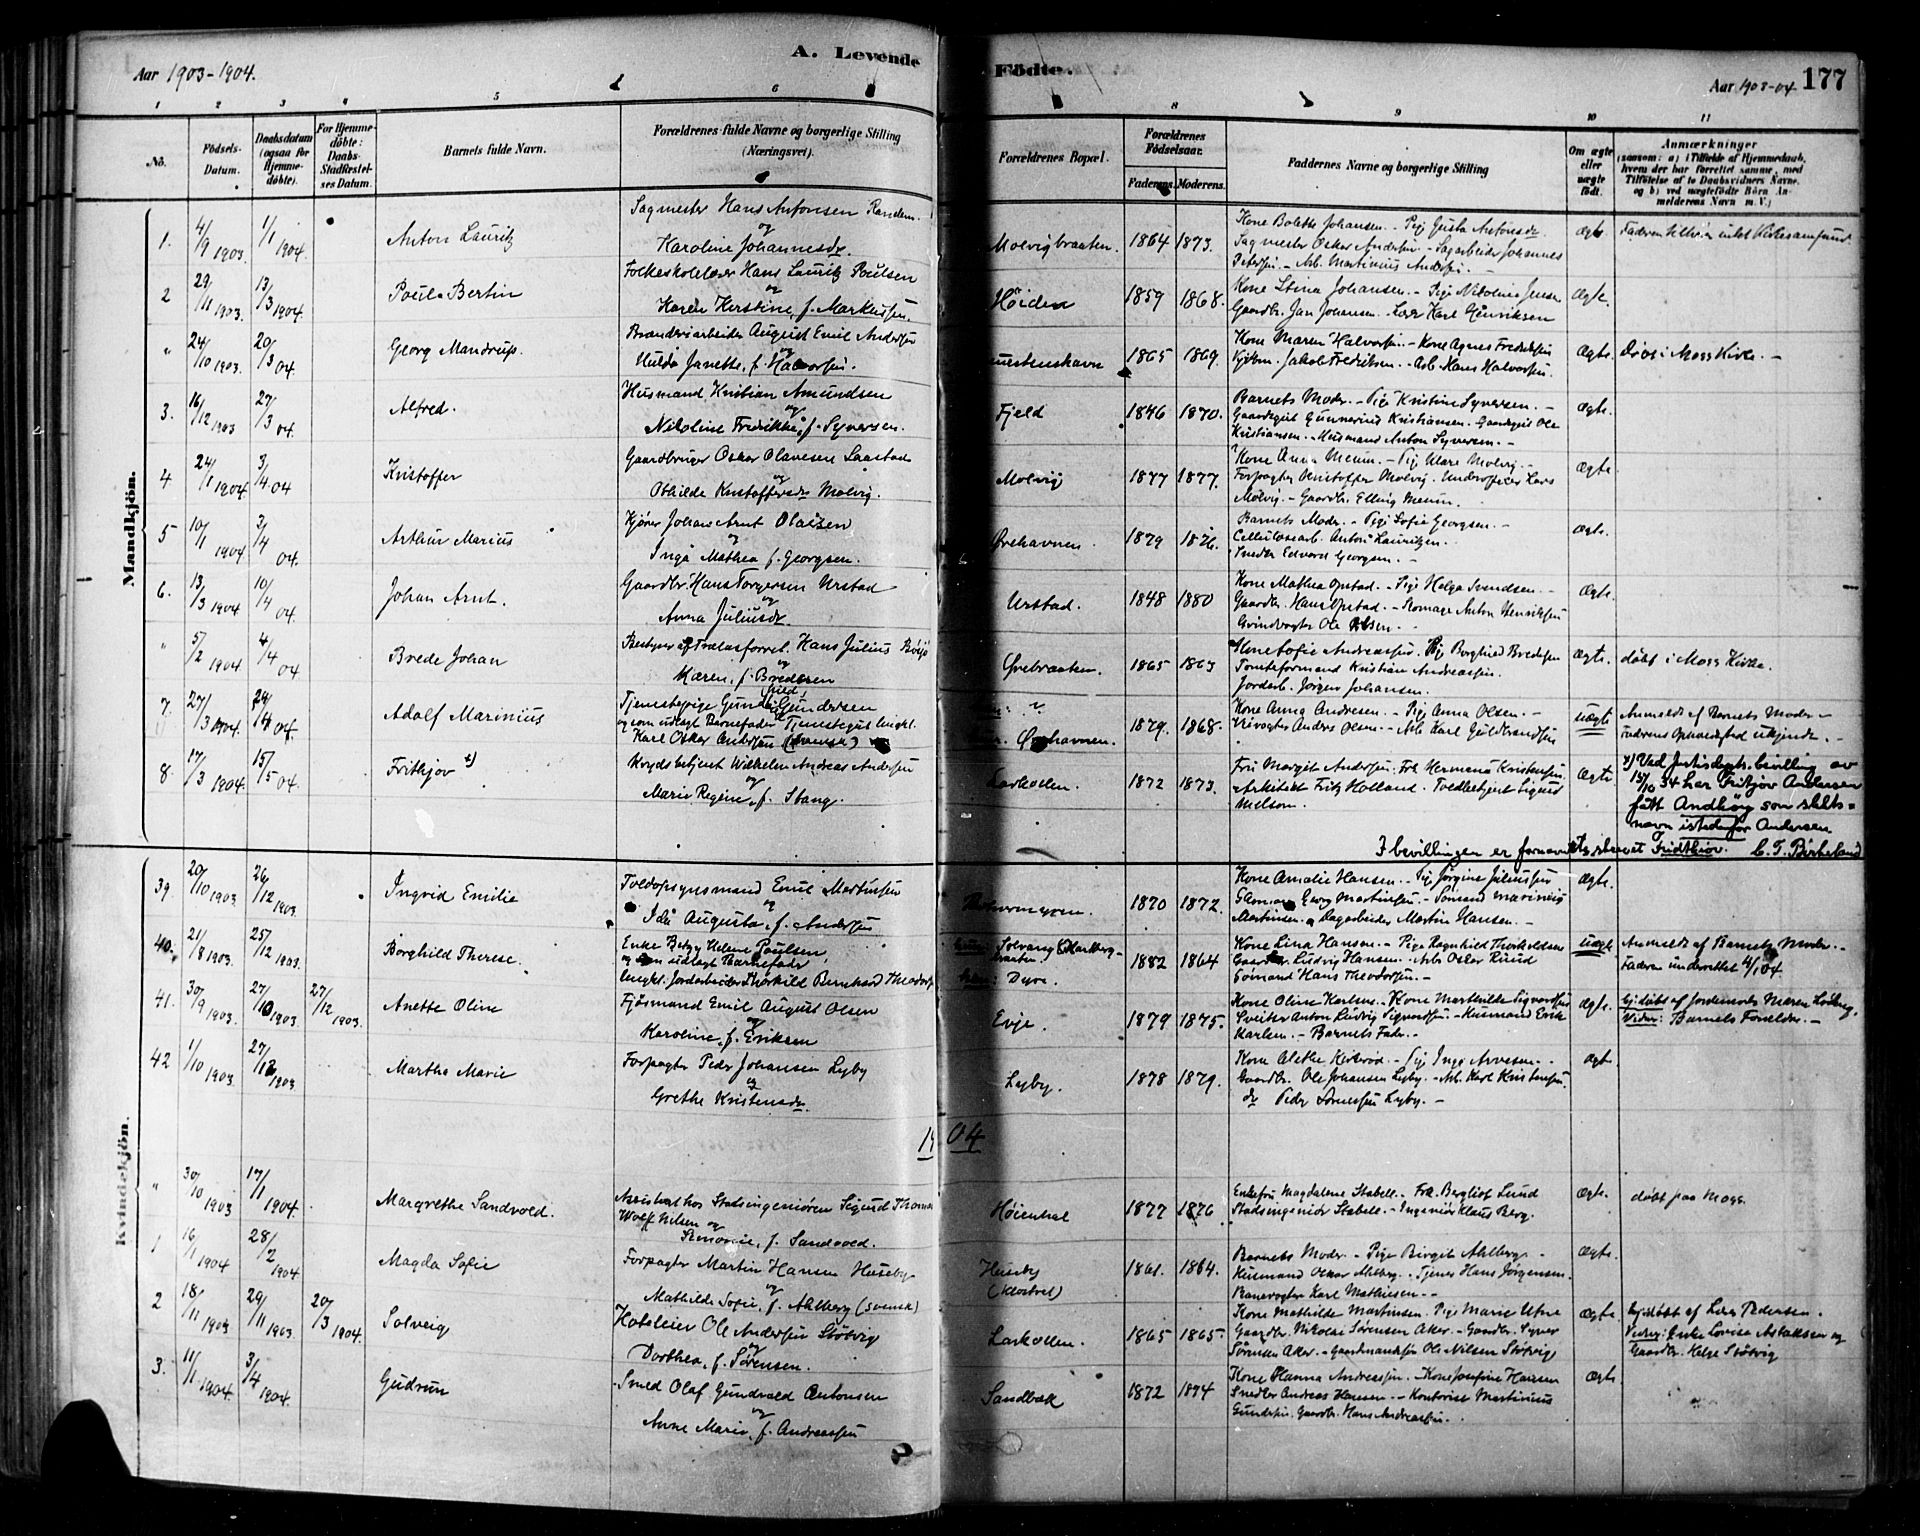 Aar 1903-1904.
A. Levende
Födte.
Aar 1903-04
177
1 2 3 4 5 6 8 9 10 11
No.
Födsels-
Datum.
Daabsdatum
(ogsaa for
Hjemme-
døbte).
For Hjemme-
døbte:
Daabs-
Stadfæstel-
ses Datum.
Barnets fulde Navn.
Forældrenes fulde Navne og borgerlige Stilling
(Næringsvei).
Forældrenes Bopæl.
Forældrenes
Födselsaar.
Faderens. Moderens.
Faddernes Navne og borgerlige Stilling
Om ægte
eller
uægte
født.
Anmærkninger
(saasom: a) i Tilfælde af Hjemmedaab,
hvem der har forrettet samme, med
Tilföielse af to Daabsvidners Navne,
og b) ved uægtefödte Börn An-
melderens Navn m. V.)
Mandkjön.
1. 4/9 1903. 1/1 1904 Anton Lauritz
Sagmester Hans Antonsen Randem
og
Karoline Johannesdr.
Molvigbraaten. 1864 1873.
Kone Bolette Johansen. - Pige Gusta Antonsdr.
Sagmester Oskar Andersen - Sagarbeider Johannes
Petersen. - Arb. Martinius Andersen. -
Ægte.
2 29/11 1903. 13/3 1904 Paul Bertin
Folkeskolelærer Hans Lauritz Poulsen
og
Karen Kirstine, f. Markussen.
Høiden 1859 1868.
Kone Stina Johansen. - Pige Nikoline Jensen
Gaardbr. Jan Johansen. - Lærer Karl Henriksen
Ægte.
" 24/10 1903. 20/3 04 Georg Mandrup.
Brænderiarbeider August Emil Andersen
og
Hulda Janette, f. Halvorsen.
1865 1869.
Kone Maren Halvorsen. - Kone Agnes Fredriksen
Jakob Fredriksen. - Arb. Hans Halvorsen.
Ægte. Døbt i Moss Kirke. -
3. 16/12 1903 27/3 04. Alfred.
Husmand Kristian Amundsen
og
Nikoline Fredrikke, f. Syversen.
Fjeld 1846 1870.
Barnets Moder. - Pige Kristine Syversen. -
Gaardgut Gunnerius Kristiansen. Gaardgut Ole
Kristiansen. - Husmand Anton Syversen. -
Ægte.
4 24/1 1904 3/4 04 Kristoffer
Gaardbruger Oskar Olavesen Saastad
og
Othilde Kristoffersdr Molvig.
Molvig 1877 1877.
Kone Anna Meum. - Pige Klara Molvig. -
Forpagter Kristoffer Molvig. Underofficer Lars
Molvig. - Gaardbr. Elling Meum.
Ægte
5 10/1 1904 3/4 04. Arthur Marius
Kjører Johan Arnt Olaisen
og
Inga Mathea f. Georgsen.
Ørehavnen. 1879 1876.
Barnets Moder. - Pige Sofie Georgsen. -
Cellulosearb. Anton Lauritzen.
Smed Edvard Georgsen. -
Ægte.
6. 13/3 1904 10/4 04. Johan Arnt.
Gaardbr. Hans Torgersen Urstad
og
Anna Juliusdr
Urstad. 1848 1880
Kone Mathea Opstad. - Pige Helga Svendsen. -
Gaardbr. Hans Opstad. - Skomager Anton Henriksen
Ole Olsen. -
Ægte.
" 5/2 1904 4/4 04. Brede Johan
Hans Julius
og
Karen, f. Bredesen
Ørebraaten. 1865 1863
Kone Sofie Andreassen. Pige Borghild Bredesen
Tomteformand Kristian Andreassen.
Jordarb. Jørgen Johansen.
Ægte. døbt i Moss Kirke.
7. 27/3 1904. 24/4 04. Adolf Marinius
Tjenestepige Gunhild Gundersen
og som udlagt Barnefader Tjenestegut Ungkl.
Karl Oskar Andersen (svensk)
Ørehavnen. 1879. 1868.
Kone Anna Andresen. - Pige Anna Olsen. -
Anders Olsen. - Arb. Karl Guldbrandsen
uægte Anmeldt af Barnets Moder. -
Faderens Opholdssted ukjendt. -
8. 17/3 1904. 15/5 04. Frithjov x)
Krydsbetjent Wilhelm Andreas Andersen
og
Marie Regine, f. Stang.
Larkollen. 1872 1873.
Fru Margit Andersen. Frk. Hermena Kristensen.
Arkitekt Fritz Holland. Toldbetjent Sigurd
Melsom.
Ægte x) Ved Justisdepts. bevilling av
15/10 34 har Fritjov Andersen
fått Andhøy som slekts=
navn istedenfor Andersen
I bevillingen er fornavnet skrevet Fridthjov. C. F. Birkeland
Kvindekjön.
39. 20/10 1903. 26/12 1903. Ingrid Emilie
Toldopsynsmand Emil Martinsen
og
Ida Augusta, f. Andersen
1870 1872.
Kone Amalie Hansen. - Pige Jørgine Juliussen
Georg Martinsen. - Sømand Marinius
Martinsen. Dagarbeider Martin Hansen. -
Ægte.
40. 21/8 1903. 25/12 1903. Borghild Therese.
Enke Betzy Helene Poulsen,
og som udlagt Barnefader
Ungkl. Jordarbeider Thorkild Bernhard Theodorsen
Dyre. 1882 1864
Kone Lina Hansen. - Pige Ragnhild Thorkildsen
Gaardbr. Ludvig Hansen. - Arb. Oskar Ruud
Sømand Hans Theodorsen. -
uægte Anmeldt af Barnets Moder. -
Faderen underrettet 4/1 04
41. 30/9 1903. 27/10 1903. 27/12 1903. Anette Oline
Fjøsmand Emil August Olsen
og
Karoline, f. Eriksen
Evje. 1879 1875.
Kone Oline Karlsen. - Kone Marthilde Sigvardsen
Sveitser Anton Ludvig Sigvardsen. - Husmand Erik
Karlsen. - Barnets Fader. -
Ægte. Hj.døbt af Jordemoder Maren Løberg.
Vidner: Barnets Forældre. -
42 1/10 1903. 27/12 1903 Martha Marie
Forpagter Peder Johansen Lyby
og
Grethe Kristensdr.
Lyby. 1878 1879.
Kone Alethe Kihlerød. - Pige Inga Arvesen. -
Gaardbr. Ole Johansen Lyby. - Arb. Karl Kristensen.
do Peder Sørensen Lyby. -
ægte
1904
" 30/10 1903 17/1 1904. Margrethe Sandvold.
Assistent hos Stadsingeniøren Sigurd Thomas
Wolff Nilsen og
Simonie, f. Sandvold.
Høienhal 1877 1876
Enkefru Magdalene Stabell. - Frk. Bergliot Lund
Stadsingeniør Stabell. - Ingeniør Klaus Berg.
Ægte. døbt paa Moss.
1 16/1 1904 28/2 1904 Magda Sofie
Forpagter Martin Hansen Huseby
og
Mathilde Sofie, f. Ahlberg (svensk)
Huseby
(Klostret)
1861. 1864.
Barnets Moder. - Pige Birgit Ahlberg. -
Husmand Oskar Ahlberg. - Tjener Hans Jørgensen.
Banevogter Karl Mathiesen. -
Ægte.
2 18/11 1903 29/11 1903. 20/3 1904. Solveig
Hoteleier Ole Andersen Støtvig
og
Dorthea, f. Sørensen.
Larkollen. 1865 1865.
Kone Mathilde Martinsen. Pige Marie Ufne
Gaardbr. Nikolai Sørensen Aker. - Gaardbr. Syver
Sørensen Aker. - Gaardmandssøn Ole Nilsen Støtvig
Ægte Hj.døbt af Lærer Pedersen.
Vidner: Enke Lovise Askaksen og
Gaardbr. Helge Støtvig
3. 11/1 1904. 3/4 1904. Gudrun
Smed Olaf Gundvald Antonsen
og
Anne Marie, f. Andreassen
Sandbæk 1872 1874
Kone Hanna Andreassen. - Kone Josefine Hansen
Smed Andreas Hansen. - Kontorist Martinius
Gundersen. Gaardbr. Hans Andreassen.
Ægte